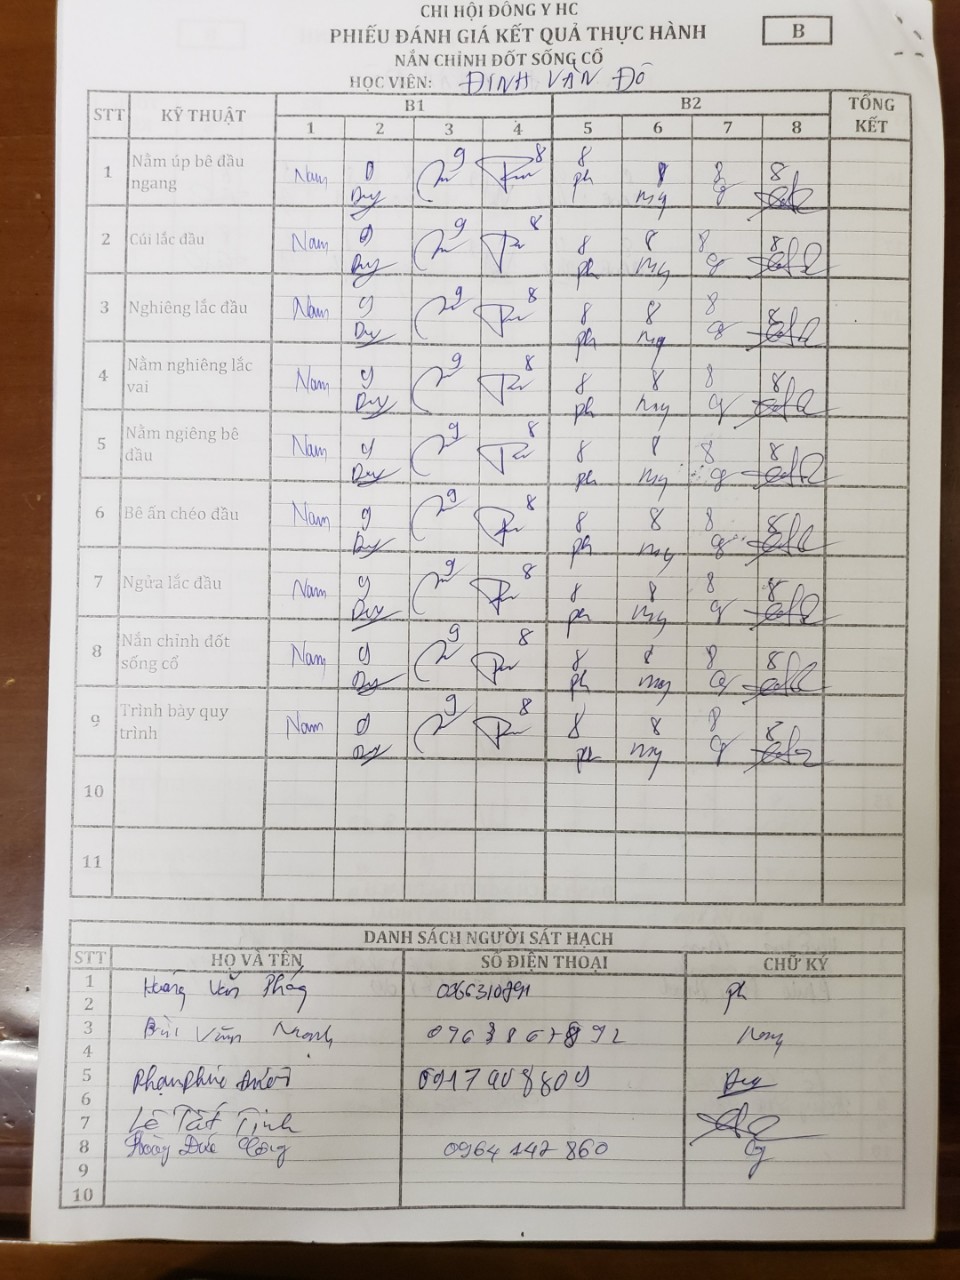 CHI HỘI ĐÔNG Y HC
PHIẾU ĐÁNH GIÁ KẾT QUẢ THỰC HÀNH
B
NẮN CHỈNH ĐỐT SỐNG CỔ
HỌC VIÊN: ĐINH VĂN ĐÔ
STT KỸ THUẬT B1 B2 TỔNG KẾT
1 2 3 4 5 6 7 8
1 Nằm úp bê đầu ngang Nam Duy 9 8 8 ph 8 my 8 8
2 Cúi lắc đầu Nam 9 Duy 9 8 8 ph 8 my 8 8
3 Nghiêng lắc đầu Nam 9 Duy 9 8 8 ph 8 my 8 8
4 Nằm nghiêng lắc vai Nam 9 Duy 9 8 8 ph 8 my 8 8
5 Nằm ngiêng bê đầu Nam 9 Duy 9 8 8 ph 8 my 8 8
6 Bê ấn chéo đầu Nam 9 Duy 9 8 8 ph 8 my 8 8
7 Ngửa lắc đầu Nam 9 Duy 9 8 8 ph 8 my 8 8
8 Nắn chỉnh đốt sống cổ Nam 9 Duy 9 8 8 ph 8 my 8 8
9 Trình bày quy trình Nam 9 Duy 9 8 8 ph 8 my 8 8
10
11
DANH SÁCH NGƯỜI SÁT HẠCH
STT HỌ VÀ TÊN SỐ ĐIỆN THOẠI CHỮ KÝ
1 Hoàng Văn ph
2
3 Bùi Văn Mạnh
4
5
6
7 Lê Tất Tịnh
8 Đức 0964 142 860
9
10